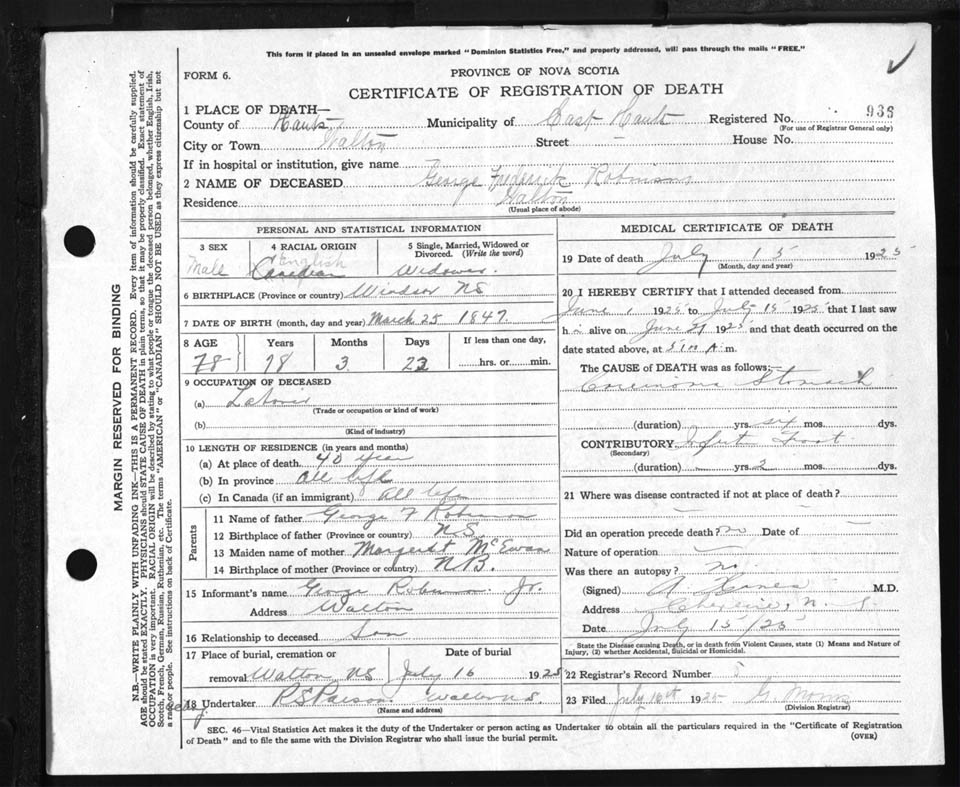 This form if placed in an unsealed envelope marked "Dominion Statistics Free," and properly addressed, will pass through the mails "FREE."
FORM 6.
PROVINCE OF NOVA SCOTIA
CERTIFICATE OF REGISTRATION OF DEATH
1 PLACE OF DEATH—
County of Hants Municipality of East Hants Registered No. 936
(For use of Registrar General only)
City or Town Walton Street House No.
If in hospital or institution, give name
2 NAME OF DECEASED George Frederick Robinson
Residence Walton
(Usual place of abode)
PERSONAL AND STATISTICAL INFORMATION
3 SEX 4 RACIAL ORIGIN 5 Single, Married, Widowed or Divorced. (Write the word)
Male English Canadian Widower
6 BIRTHPLACE (Province or country) Windsor NS
7 DATE OF BIRTH (month, day and year) March 25 1847
8 AGE Years Months Days If less than one day,
78 78 3 22 hrs. or min.
9 OCCUPATION OF DECEASED
(a) Laborer
(Trade or occupation or kind of work)
(b)
(Kind of industry)
10 LENGTH OF RESIDENCE (in years and months)
(a) At place of death 40 year
(b) In province all life
(c) In Canada (if an immigrant) all life
Parents
11 Name of father George F Robinson
12 Birthplace of father (Province or country) N.S.
13 Maiden name of mother Margaret McEwan
14 Birthplace of mother (Province or country) N.B.
15 Informant's name George Robinson Jr.
Address Walton
16 Relationship to deceased Son
17 Place of burial, cremation or removal Date of burial
Walton NS July 16 1925
18 Undertaker Walton N.S.
(Name and address)
MEDICAL CERTIFICATE OF DEATH
19 Date of death July 15 1925
(Month, day and year)
20 I HEREBY CERTIFY that I attended deceased from
June 1 1925 to July 15 1925 that I last saw
him alive on June 1925 and that death occurred on the
date stated above, at 5 A.m.
The CAUSE of DEATH was as follows:—
Carcinoma Stomach
(duration) yrs. six mos. dys.
CONTRIBUTORY Foot
(Secondary)
(duration) yrs. 2 mos. dys.
21 Where was disease contracted if not at place of death?
Did an operation precede death? no Date of
Nature of operation
Was there an autopsy? no
(Signed) M.D.
Address N. S.
Date July 15/25
State the Disease causing Death, or in death from Violent Causes, state (1) Means and Nature of Injury, (2) whether Accidental, Suicidal or Homicidal.
22 Registrar's Record Number 5
23 Filed July 16th 1925 G. Morris
(Division Registrar)
SEC. 46—Vital Statistics Act makes it the duty of the Undertaker or person acting as Undertaker to obtain all the particulars required in the "Certificate of Registration
of Death" and to file the same with the Division Registrar who shall issue the burial permit. (OVER)
MARGIN RESERVED FOR BINDING
N.B.—WRITE PLAINLY WITH UNFADING INK—THIS IS A PERMANENT RECORD. Every item of information should be carefully supplied.
AGE should be stated EXACTLY. PHYSICIANS should STATE CAUSE OF DEATH in plain terms, so that it may be properly classified. Exact statement of
OCCUPATION is very important. RACIAL ORIGIN will be described by stating to what people or tongue the deceased person belonged, whether English, Irish,
Scotch, French, German, Russian, Ruthenian, etc. The terms "AMERICAN" or "CANADIAN" SHOULD NOT BE USED as they express citizenship but not
a race or people. See instructions on back of Certificate.